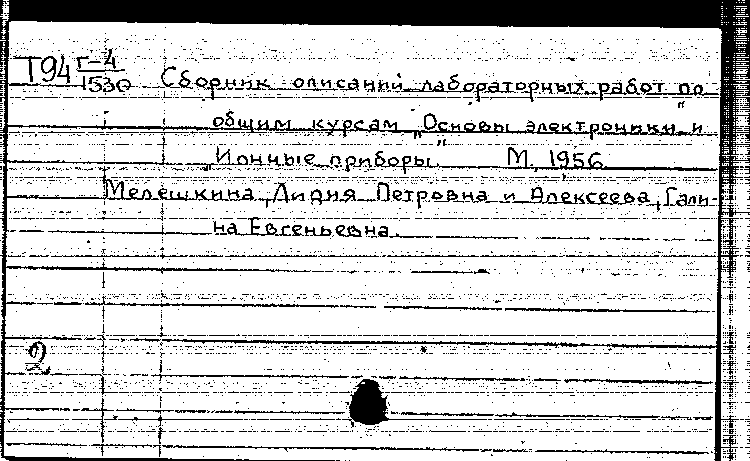 Т94 Г-4/1530 Сборник описаний лабораторных работ по
общим курсам „Основы электроники" и
„Ионные приборы." М., 1956
Мелешкина, Лидия Петровна и Алексеева, Гали-
на Евгеньевна.
2